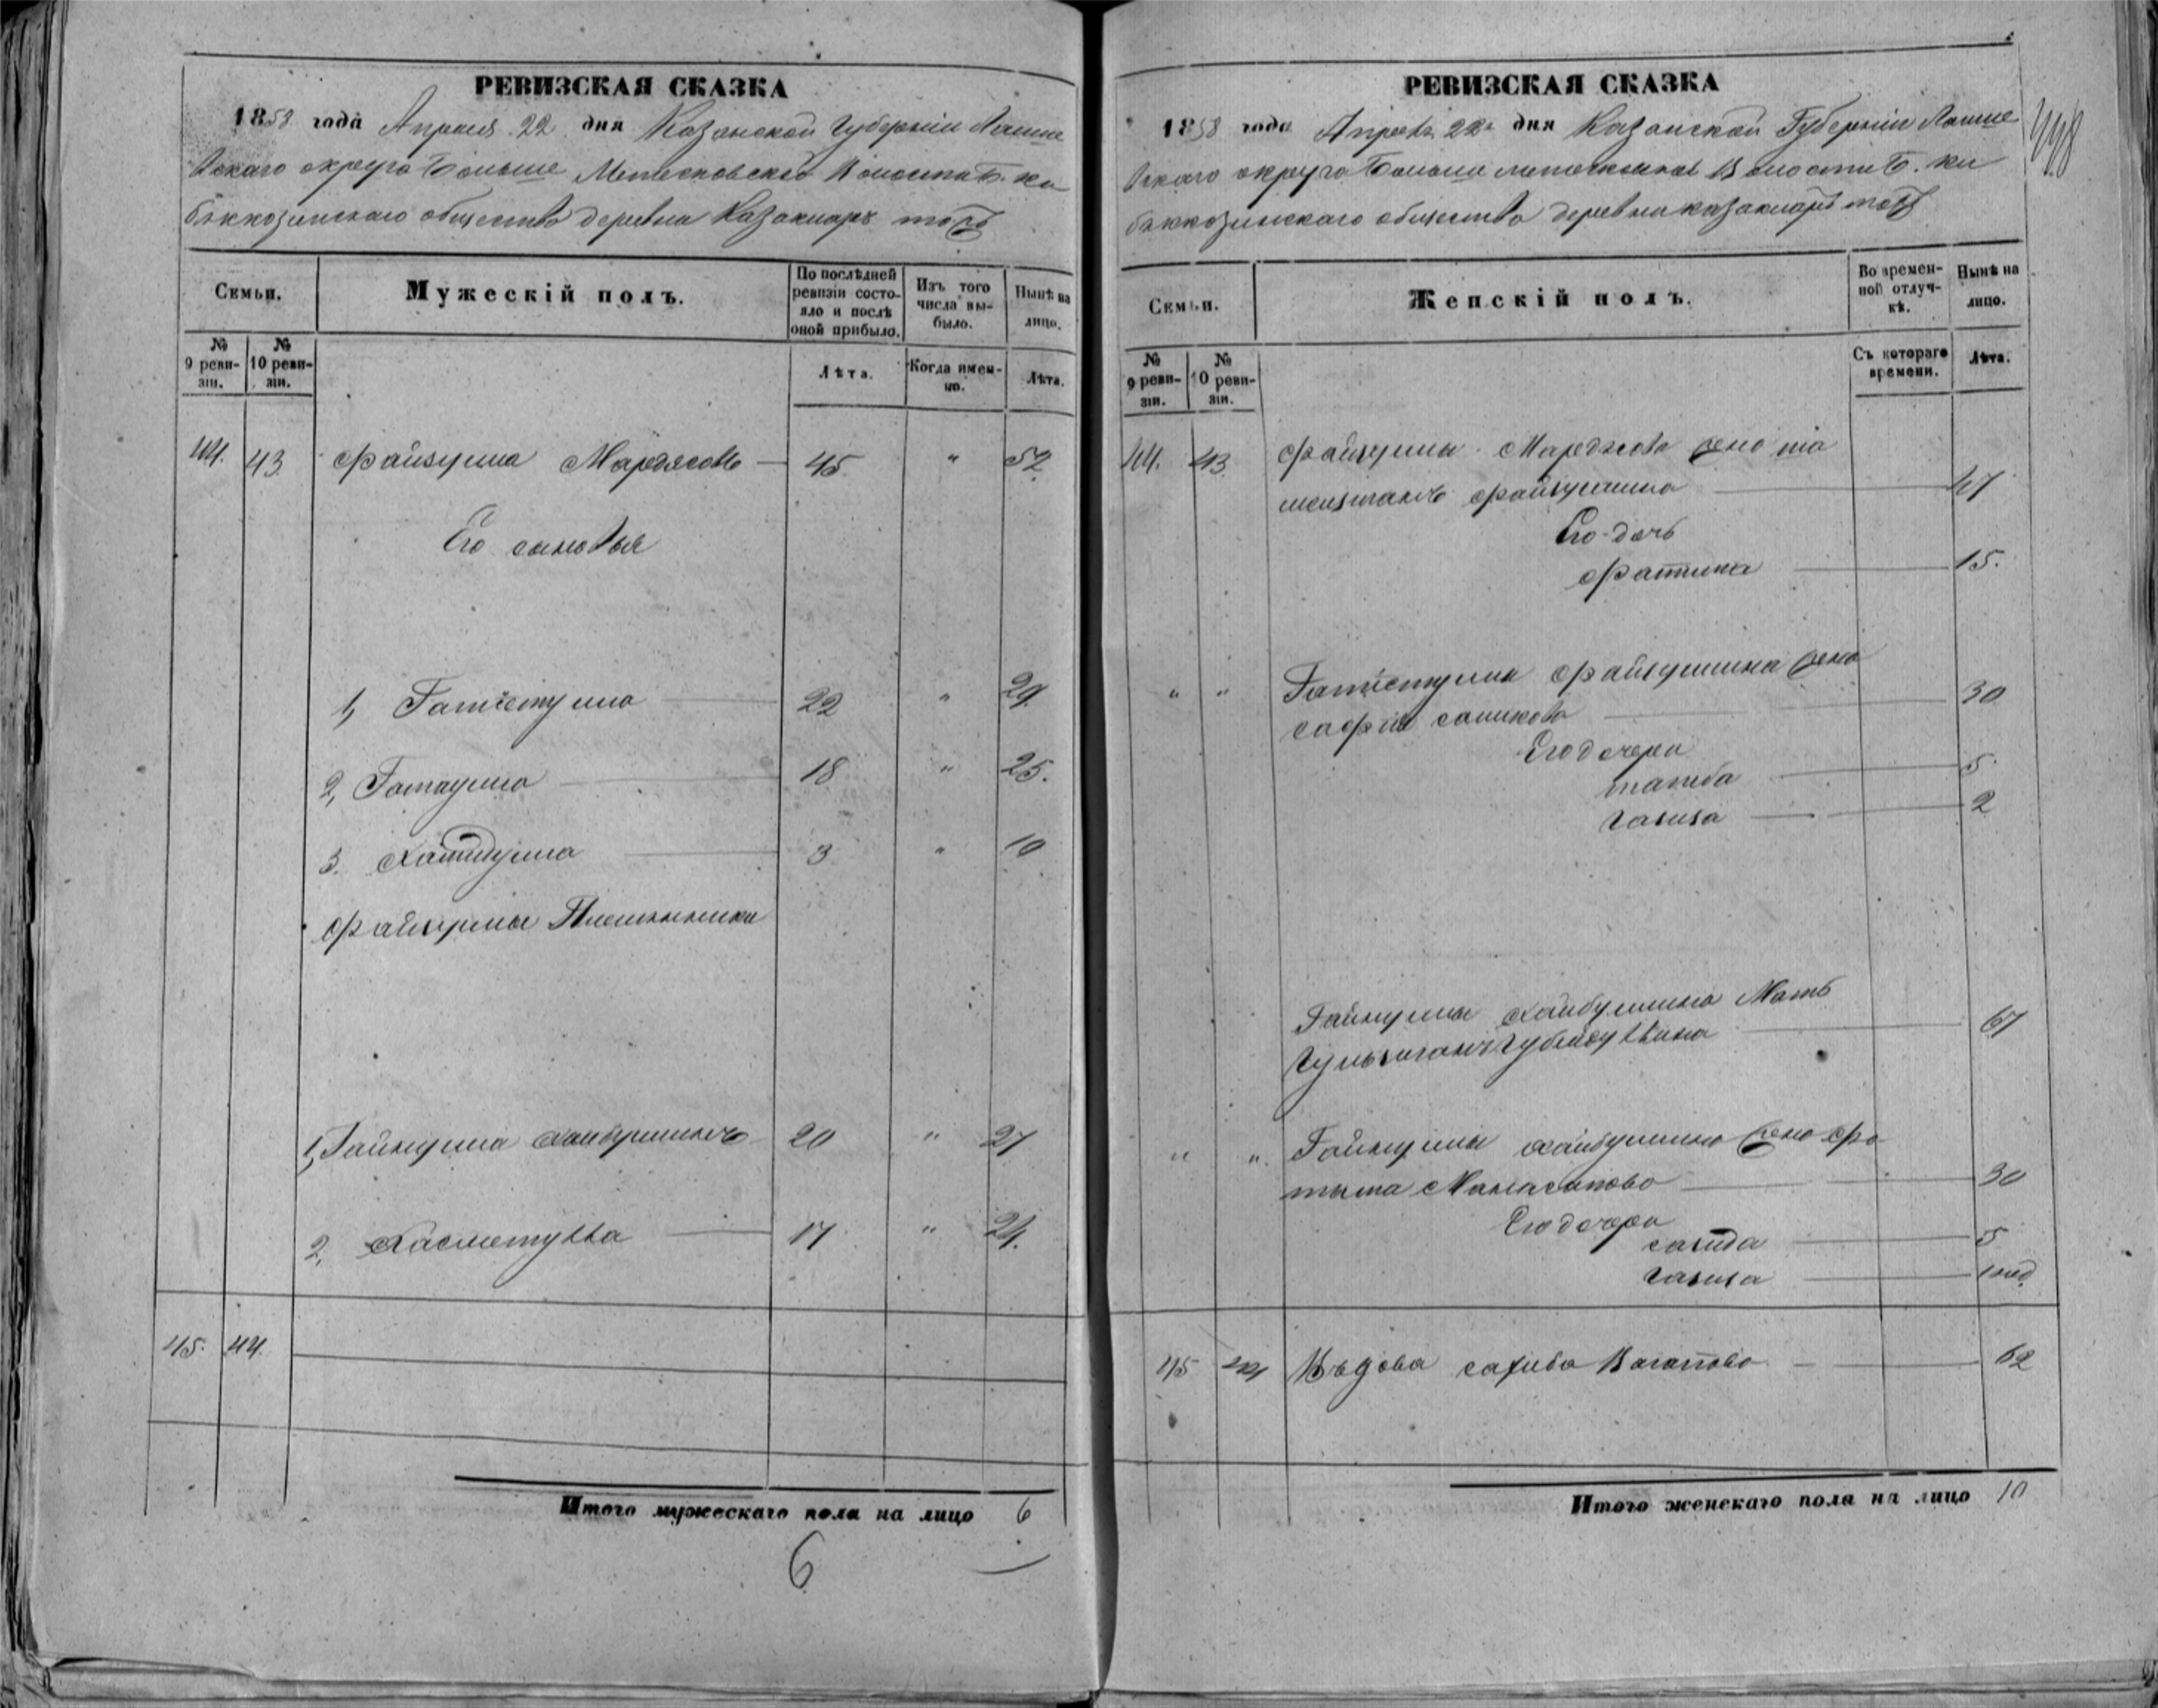 РЕВИЗСКАЯ СКАЗКА
1858 года Апреля 22 дня Казанской Губернiи Лаише
вскаго округа Больше Метесковской Волости Б. Ки
бяккозинскаго общества деревни Казакларъ тожъ
Семьи.
Мужескiй полъ.
По послѣдней ревизiи состо-
яло и послѣ оной прибыло.
Изъ того числа вы-
было.
Нынѣ на лицо.
№ 9 реви-
зiи.
№ 10 реви-
зiи.
Лѣта.
Когда имен-
но.
Лѣта.
44. 43. Файзулла Мардясовъ 45. " 52.
Его сыновья
1, Гатiетулла 22 " 29.
2, Гатаулла 18 " 25.
3. Хатибулла 3 " 10
Файзуллы Племянники
1, Гайнулла Хайбуллинъ 20 " 27
2, Хасметулла 17 " 24.
45. 44.
Итого мужескаго пола на лицо 6
6
РЕВИЗСКАЯ СКАЗКА
1858 года Апреля 22 дня Казанской Губернiи Лаише
вскаго округа Больше Метесковской Волости Б. Ки
бяккозинскаго общества деревни Казакларъ тожъ
Семьи.
Женскiй полъ.
Во времен-
ной отлуч-
кѣ.
Нынѣ на лицо.
№ 9 реви-
зiи.
№ 10 реви-
зiи.
Съ котораго времени.
Лѣта.
44. 43. Файзуллы Мардясова жена
Файзуллина 47
Его дочь
Фатима 15.
" " Гатiетуллы Файзуллина жена
Сафiя Салихова 30
Его дочери
5.
Газиза 2
Гайнуллы Хайбуллина Мать
67
" ". Гайнуллы Хайбуллина жена Фа
тыма 30
Его дочери
Сагида 5
Газиза 1 нед.
45 44 Вдова Сахиба Вагапова 62
Итого женскаго пола на лицо 10